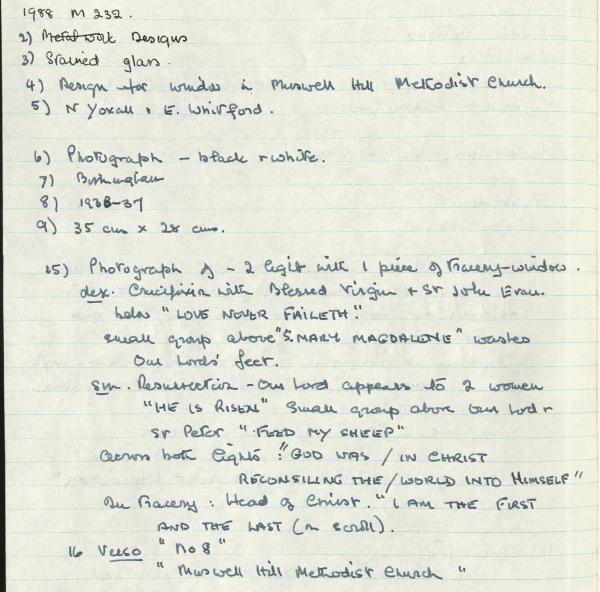 1988 M 232.
2) Metalwork Designs
3) Stained glass.
4) Design for window in Muswell Hill Methodist Church.
5) N Yoxall & E. Whitford.
6) Photograph - black & white.
7) Birmingham
8) 1936-37
9) 35 cms x 28 cms.
15) Photograph of - 2 light with 1 piece of tracery-window.
dex. Crucifixion with Blessed Virgin + St John Evan.
below "LOVE NEVER FAILETH."
small group above "S. MARY MAGDALENE" washes
Our Lords' feet.
Sin. Resurrection - Our Lord appears to 2 women
"HE IS RISEN" Small group above Our Lord &
St Peter "FEED MY SHEEP"
Across both lights: "GOD WAS / IN CHRIST
RECONSILING THE / WORLD INTO HIMSELF"
In Tracery: Head of Christ. "I AM THE FIRST
AND THE LAST (on scroll).
16 Verso "No 8"
"Muswell Hill Methodist Church"